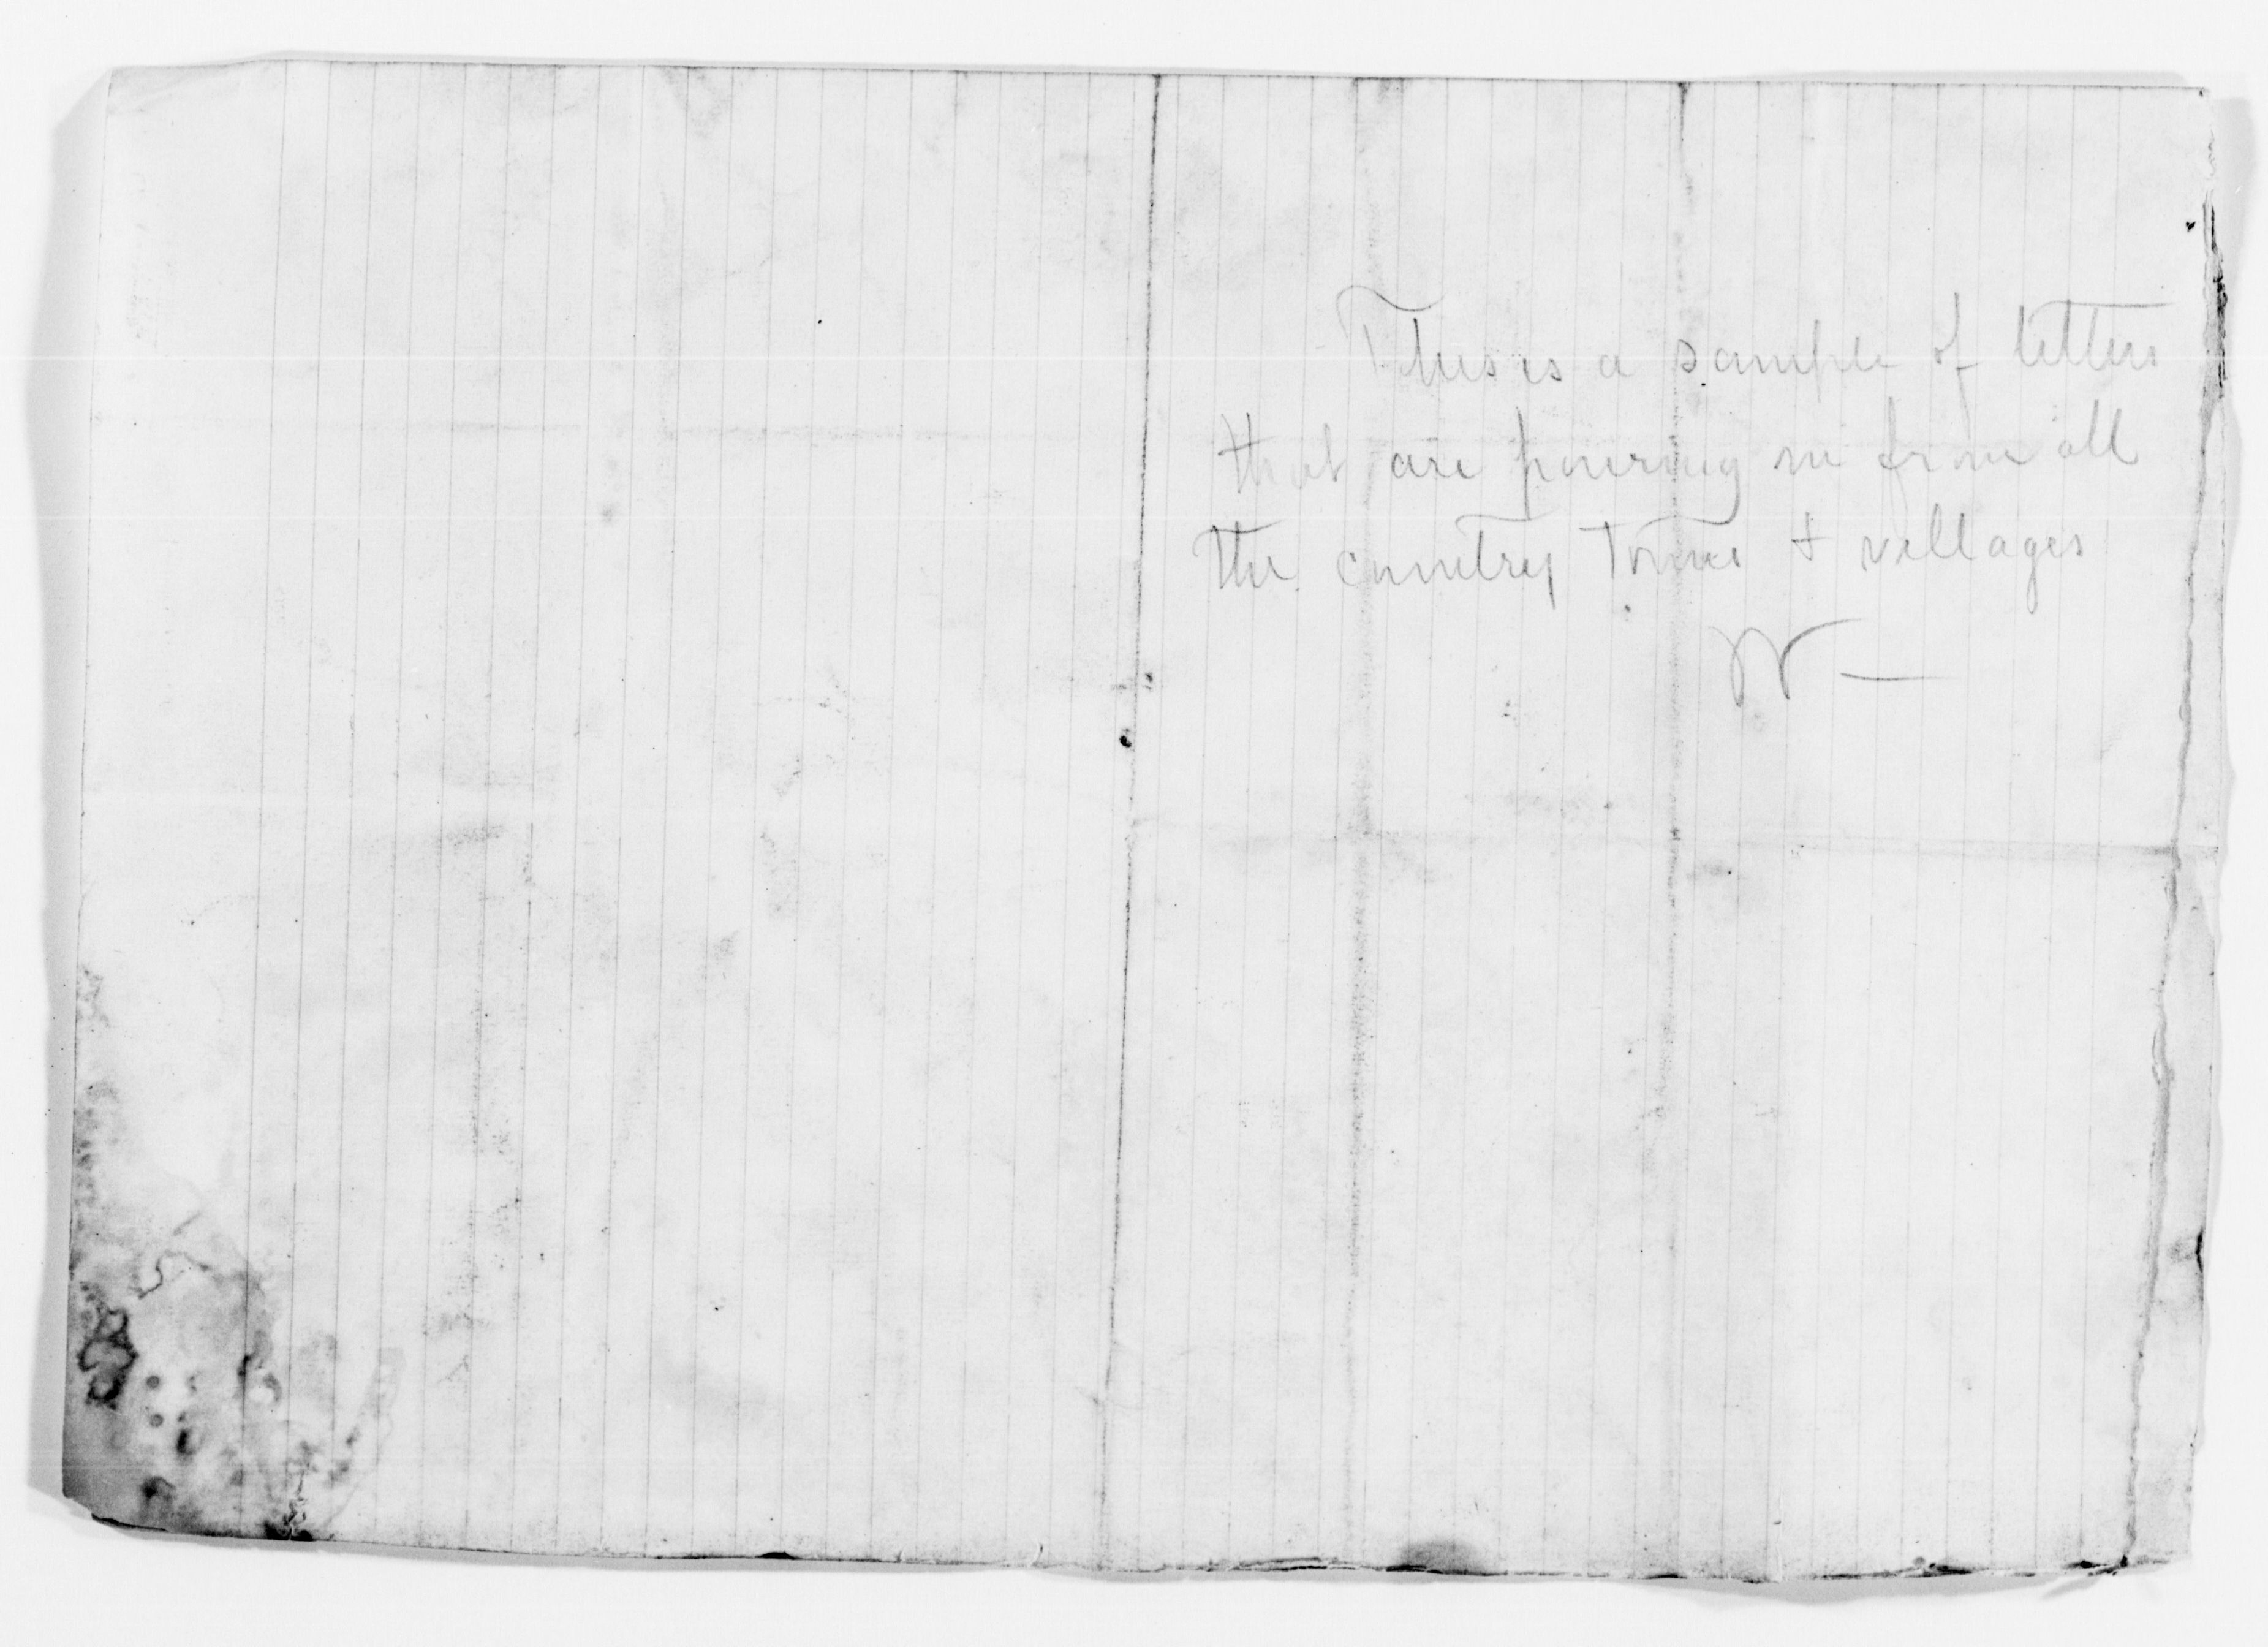 This is a sample of letters
that are pouring in from all
the country towns & villages
W —